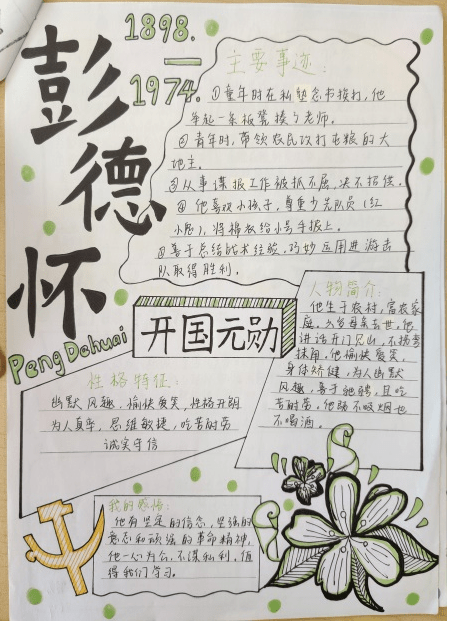 彭德怀
1898.
—
1974.
Peng Dehuai
主要事迹:
①童年时在私塾念书挨打,他
举起一条板凳揍了老师。
②青年时,带领农民攻打屯粮的大
地主。
③从事谍报工作被抓不屈,决不招供。
④他喜欢小孩子,尊重少先队员(红
小鬼),将棉衣给小号手披上。
⑤善于总结战术经验,巧妙运用进游击
队取得胜利。
开国元勋
人物简介:
他生于农村,富农家
庭,六岁母亲去世,他
讲话开门见山,不拐弯
抹角,他愉快爱笑,
身体矫健,为人幽默
风趣,善于驰骋,且吃
苦耐劳。他既不吸烟也
不喝酒。
性格特征:
幽默风趣、愉快爱笑,性格开朗
为人真率,思维敏捷,吃苦耐劳
诚实守信
我的感悟:
他有坚定的信念,坚强的
意志和顽强的革命精神,
他一心为公,不谋私利,值
得我们学习。